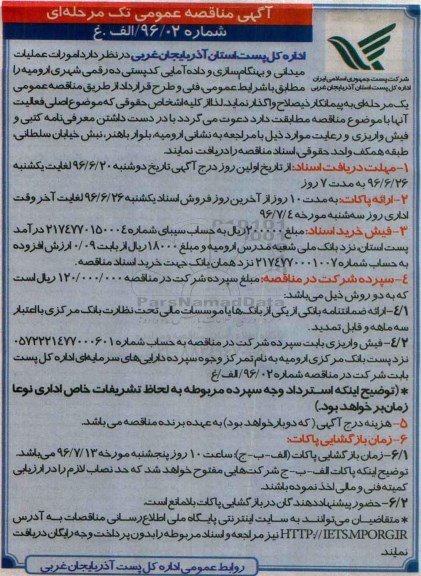 آگهی مناقصه عمومی تک مرحله‌ای
شماره ۹۶/۰۲/الف.غ
شرکت پست جمهوری اسلامی ایران
اداره کل پست استان آذربایجان غربی
اداره کل پست استان آذربایجان غربی در نظر دارد امورات عملیات
میدانی و بهنگام‌سازی و داده‌آمایی کدپستی ده رقمی شهری ارومیه را
مطابق با شرایط عمومی، فنی و طرح قرارداد از طریق مناقصه عمومی
یک مرحله‌ای به پیمانکار ذیصلاح واگذار نماید. لذا از کلیه اشخاص حقوقی که موضوع اصلی فعالیت
آنها با موضوع مناقصه مطابقت دارد دعوت می گردد با در دست داشتن معرفی‌نامه کتبی و
فیش واریزی و رعایت موارد ذیل با مراجعه به نشانی ارومیه، بلوار باهنر، نبش خیابان سلطانی،
طبقه همکف واحد حقوقی، اسناد مناقصه را دریافت نمایند.
۱-مهلت دریافت اسناد: از تاریخ اولین روز درج آگهی تاریخ دوشنبه ۹۶/۶/۲۰ لغایت یکشنبه
۹۶/۶/۲۶ به مدت ۷ روز
۲-ارائه پاکات: به مدت ۱۰ روز از آخرین روز فروش اسناد یکشنبه ۹۶/۶/۲۶ لغایت آخر وقت
اداری روز سه‌شنبه مورخه ۹۶/۷/۴
۳-فیش خرید اسناد: مبلغ ۲۰۰۰۰۰ ریال به حساب سیبای شماره ۲۱۷۴۷۷۰۱۵۰۰۰۴ درآمد
پست استان، نزد بانک ملی شعبه مدرس ارومیه و مبلغ ۱۸۰۰۰ ریال از بابت ۰/۰۹ ارزش افزوده
به حساب شماره ۲۱۷۴۷۷۰۰۰۱۰۰۷ نزد همان بانک جهت خرید اسناد مناقصه.
۴-سپرده شرکت در مناقصه: مبلغ سپرده شرکت در مناقصه ۱۲۰/۰۰۰/۰۰۰ ریال است
که به دو روش ذیل می‌باشد:
ParsNamadData
۴/۱-ارائه ضمانتنامه بانکی از یکی از بانک‌ها یا موسسات مالی تحت نظارت بانک مرکزی با اعتبار
سه ماهه و قابل تمدید.
۴/۲-فیش واریزی بابت سپرده شرکت در مناقصه به حساب شماره ۰۵۷۲۲۲۱۴۷۷۰۰۰۶۰۱
نزد پست بانک مرکزی ارومیه به نام تمرکز وجوه سپرده دارایی‌های سرمایه‌ای اداره کل پست
بابت شرکت در مناقصه شماره ۹۶/۰۲/الف/غ
*(توضیح اینکه استرداد وجه سپرده مربوطه به لحاظ تشریفات خاص اداری نوعا
زمان‌بر خواهد بود.)
۵-هزینه درج آگهی (که دوبار خواهد بود) به عهده برنده مناقصه می باشد.
۶-زمان بازگشایی پاکات:
۶/۱-زمان بازگشایی پاکات (الف-ب-ج): ساعت ۱۰ روز پنجشنبه مورخه ۹۶/۷/۱۳ می‌باشد.
توضیح اینکه پاکات الف-ب-ج شرکت‌هایی مفتوح خواهد شد که حد نصاب لازم را در ارزیابی
کمیته فنی و مالی اخذ نموده باشند.
۶/۲-حضور پیشنهاددهندگان در بازگشایی پاکات بلامانع است.
* متقاضیان می‌توانند به سایت اینترنتی پایگاه ملی اطلاع رسانی مناقصات به آدرس
HTTP//IETS.MPORG.IR نیز مراجعه و اسناد مربوطه را بدون پرداخت وجه رایگان دریافت
نمایند.
روابط عمومی اداره کل پست آذربایجان غربی